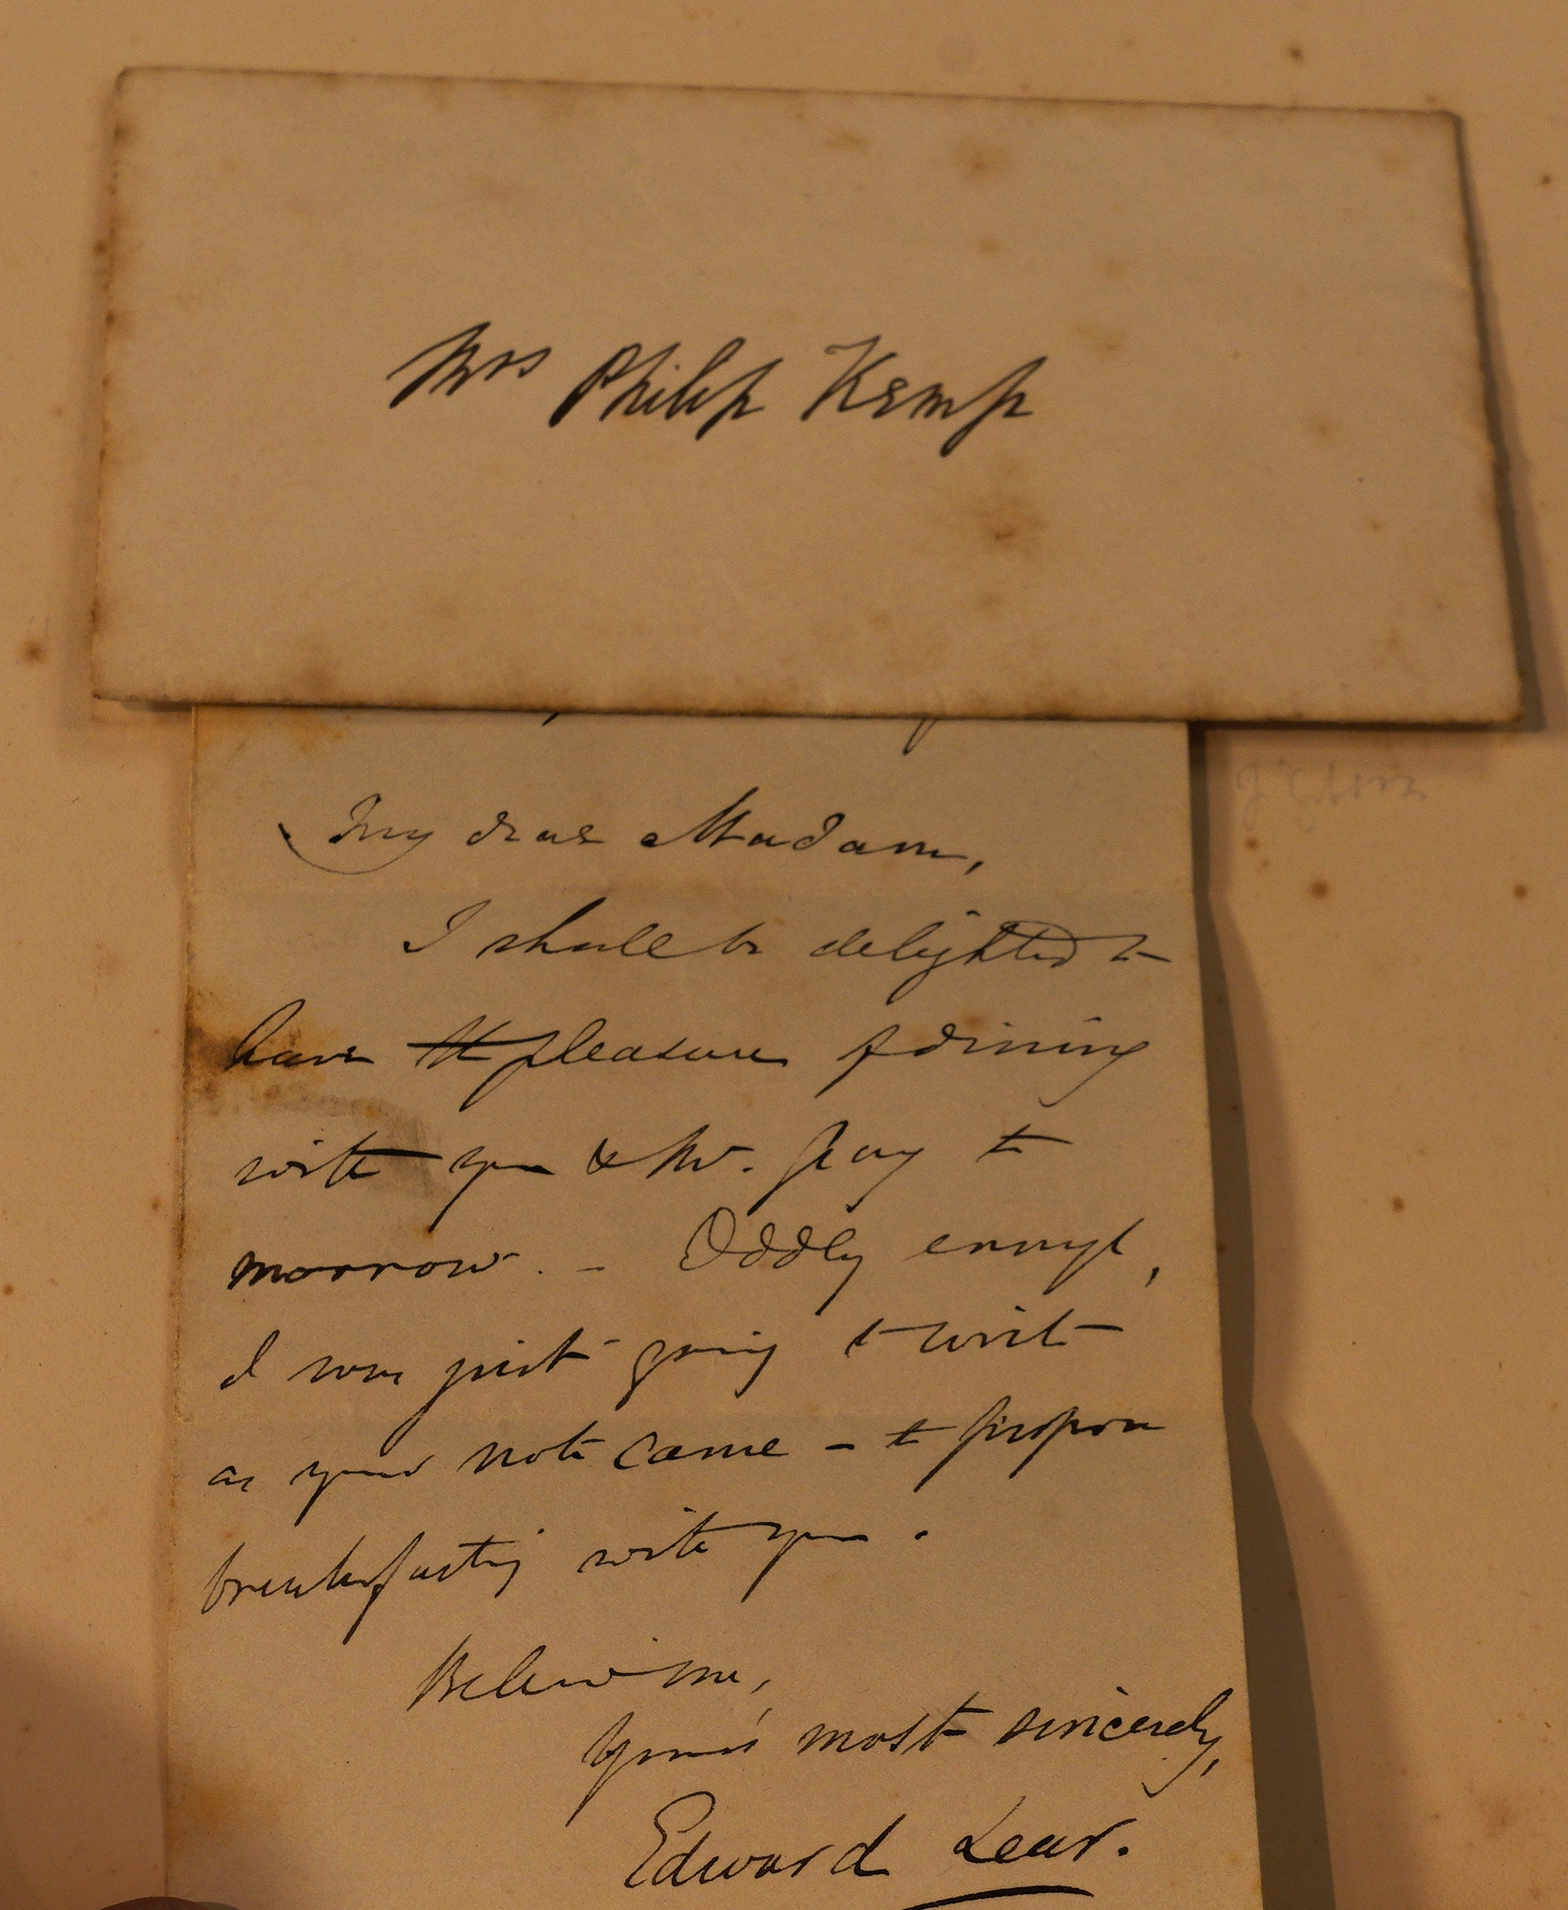 Mrs Philip Kemp
My dear Madam,
I shall be delighted to
have the pleasure of dining
with you & Mr. Gray to
morrow. - Oddly enough,
I was just going to write
as your note came - to propose
breakfasting with you.
Believe me,
Yours most sincerely,
Edward Lear.